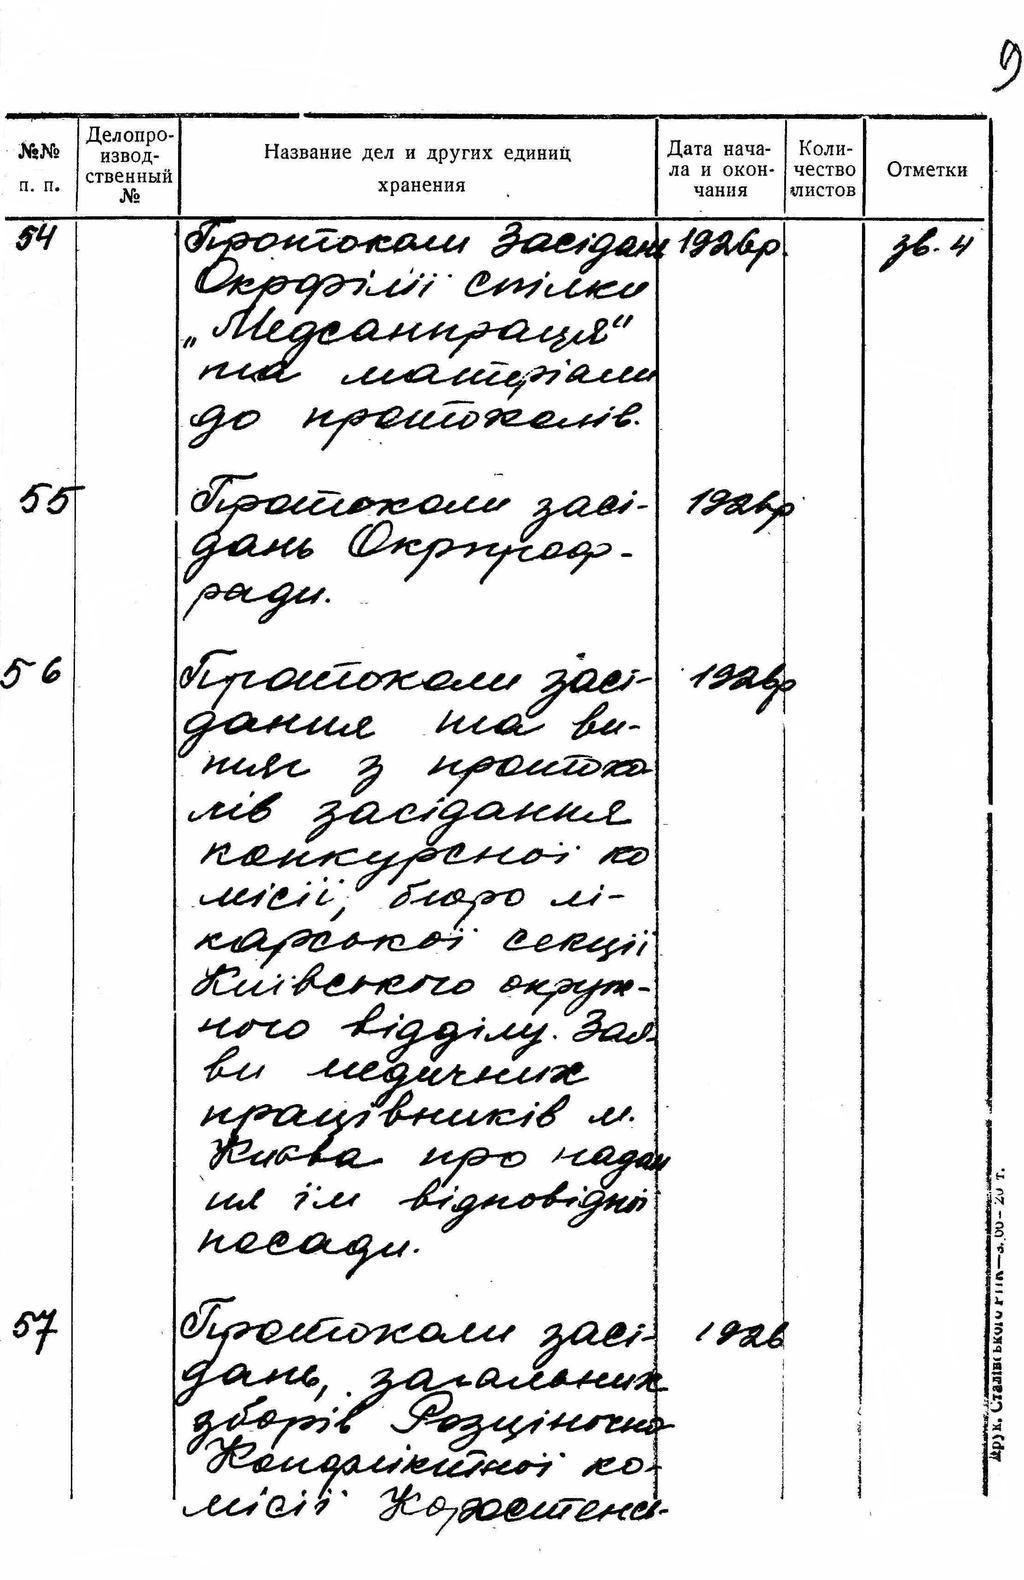 9
№№ п. п.
Делопроизвод-
ственный
№
Название дел и других единиц
хранения
Дата нача-
ла и окон-
чания
Коли-
чество
листов
Отметки
54 Протоколи Засідань 1926р. зв. 4
Окрфілії спілки
„Медсанпраця"
та матеріали
до протоколів.
55 Протоколи засі- 1926р
дань Окрпроф-
ради.
56 Протоколи засі- 1926р
дання та ви-
тяг з протоко-
лів засідання
конкурсної ко
місії, бюро лі-
карської секції
Київського окруж-
ного відділу. Зая-
ви медичних
працівників м.
Києва про надан
ня їм відповідної
посади.
57 Протоколи засі- 1926
дань, загальних
зборів Розціночно
Конфліктної ко-
місії Коростенсь-